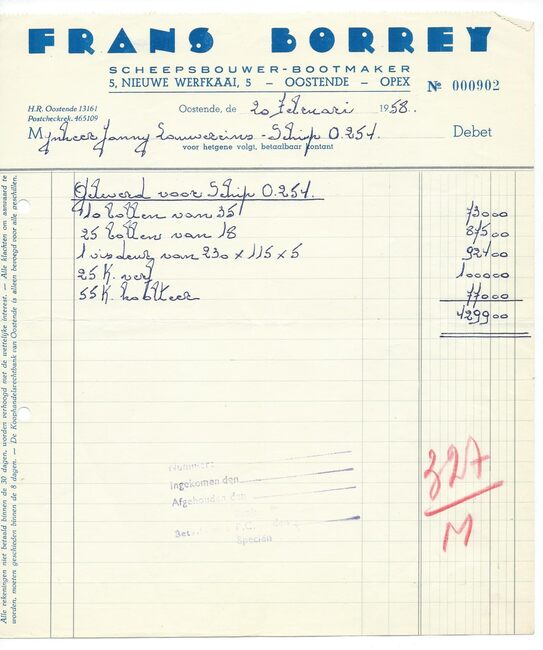 FRANS BORREY
SCHEEPSBOUWER-BOOTMAKER
5, NIEUWE WERFKAAI, 5 — OOSTENDE — OPEX
Nº 000902
H.R. Oostende 13161
Postcheckrek. 465109
Oostende, de 20 Februari 1958.
Mynheer Lauwereins - Schip O.254.
Debet
voor hetgene volgt, betaalbaar kontant
Geleverd voor Schip O.254.
10 bollen van 35 730 00
25 bollen van 18 875 00
1 visdeur van 230 x 115 x 5 924 00
25 K. verf 1000 00
55 K. koolteer 770 00
4299 00
Nummer:
Ingekomen den
Afgehouden den
den
Speciën
327
M
Alle rekeningen niet betaald binnen de 30 dagen, worden verhoogd met de wettelijke interest. — Alle klachten om aanvaard te
worden, moeten geschieden binnen de 8 dagen. — De Koophandelsrechtbank van Oostende is alleen bevoegd voor alle geschillen.